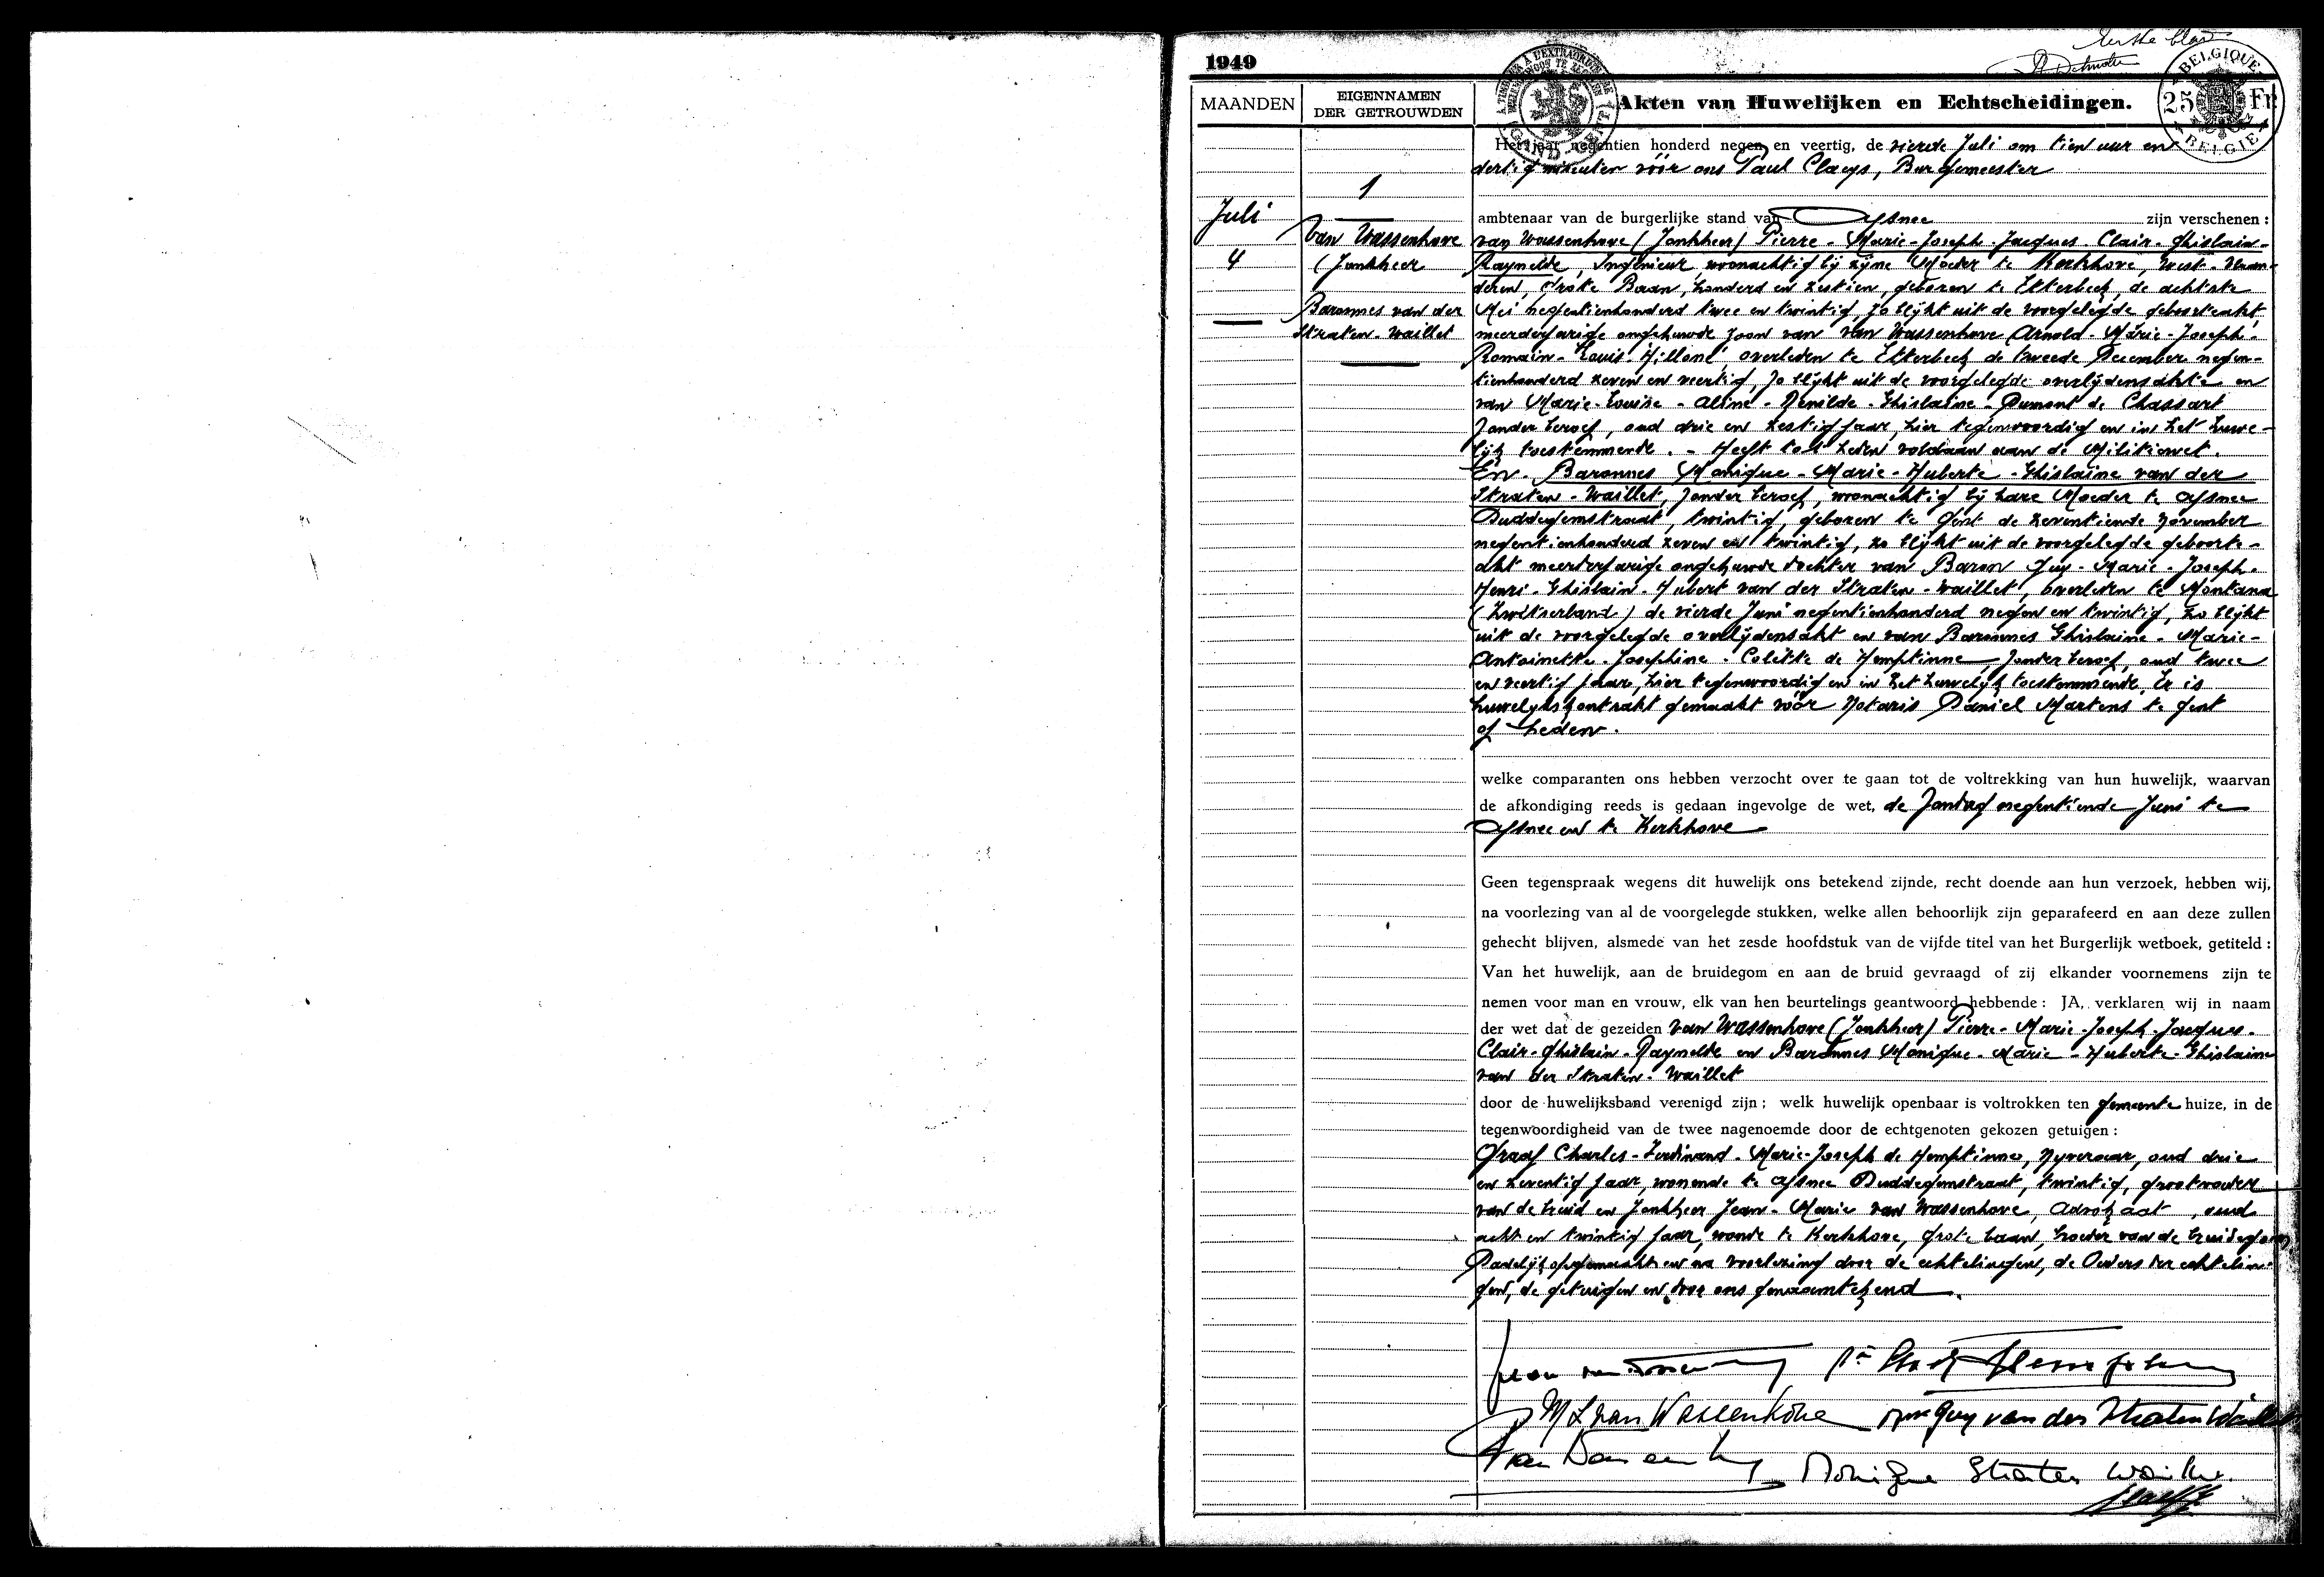 Eerste blad
1949
MAANDEN
EIGENNAMEN
DER GETROUWDEN
Akten van Huwelijken en Echtscheidingen.
BELGIQUE
25 Fr
BELGIE
GAND - GENT
Juli
4
1
Van Wassenhove
(Jonkheer
Baronnes van der
Straten-Waillet
Het jaar negentien honderd negen en veertig, de vierde Juli om tien uur en
dertig minuten vóór ons Paul Claeys, Burgemeester
ambtenaar van de burgerlijke stand van Afsnee zijn verschenen :
van Wassenhove (Jonkheer) Pierre-Marie-Joseph-Jacques-Clair-Ghislain-
Raynelde, Ingenieur, woonachtig bij zijne Moeder te Kerkhove, West-Vlaan-
deren, Grote Baan, honderd en zestien, geboren te Etterbeek, de achtste
Mei negentienhonderd twee en twintig, zo blijkt uit de voorgelegde geboorteakt,
meerderjarige ongehuwde zoon van van Wassenhove Arnold-Marie-Joseph-
Romain-Louis-Hilloné, overleden te Etterbeek de tweede December negen-
tienhonderd zeven en veertig, zo blijkt uit de voorgelegde overlijdensakte en
van Marie-Louise-Aline-Renilde-Ghislaine-Dumont de Chassart
zonder beroep, oud drie en zestig jaar, hier tegenwoordig en in het huwe-
lijk toestemmende. - Heeft tot heden voldaan aan de Militiewet.
En. Baronnes Monique-Marie-Huberte-Ghislaine van der
Straten-Waillet, zonder beroep, woonachtig bij hare Moeder te Afsnee
Duddegemstraat, twintig, geboren te Gent de zeventiende November
negentienhonderd zeven en twintig, zo blijkt uit de voorgelegde geboorte-
akt meerderjarige ongehuwde dochter van Baron Guy-Marie-Joseph-
Henri-Ghislain-Hubert van der Straten-Waillet, overleden te Montana
(Zwitserland) de vierde Juni negentienhonderd negen en twintig, zo blijkt
uit de voorgelegde overlijdensakt en van Baronnes Ghislaine-Marie-
Antoinette-Josephine-Colette de Hemptinne, zonder beroep, oud twee
en veertig jaar, hier tegenwoordig en in het huwelijk toestemmende, Er is
huwelijkskontrakt gemaakt vóór Notaris Daniel Martens te Gent
op heden.
welke comparanten ons hebben verzocht over te gaan tot de voltrekking van hun huwelijk, waarvan
de afkondiging reeds is gedaan ingevolge de wet, de Zondag negentiende Juni te
Afsnee en te Kerkhove
Geen tegenspraak wegens dit huwelijk ons betekend zijnde, recht doende aan hun verzoek, hebben wij,
na voorlezing van al de voorgelegde stukken, welke allen behoorlijk zijn geparafeerd en aan deze zullen
gehecht blijven, alsmede van het zesde hoofdstuk van de vijfde titel van het Burgerlijk wetboek, getiteld :
Van het huwelijk, aan de bruidegom en aan de bruid gevraagd of zij elkander voornemens zijn te
nemen voor man en vrouw, elk van hen beurtelings geantwoord hebbende : JA, verklaren wij in naam
der wet dat de gezeiden van Wassenhove (Jonkheer) Pierre-Marie-Joseph-Jacques-
Clair-Ghislain-Raynelde en Baronnes Monique-Marie-Huberte-Ghislaine
van der Straten-Waillet
door de huwelijksband verenigd zijn ; welk huwelijk openbaar is voltrokken ten gemeente huize, in de
tegenwoordigheid van de twee nagenoemde door de echtgenoten gekozen getuigen :
Graaf Charles-Ferdinand-Marie-Joseph de Hemptinne, Nyveraar, oud drie
en zeventig jaar, wonende te Afsnee Duddegemstraat, twintig, grootvader
van de bruid en Jonkheer Jean-Marie van Wassenhove, Advokaat, oud
acht en twintig jaar, wonde te Kerkhove, Grote baan, broeder van de bruidegom
Dadelijk opgemaakt en na voorlezing door de echtelingen, de Ouders der echtelin-
gen, de getuigen en door ons genaamtekend.
M L van Wassenhove
Guy van der Straten Waillet
Monique Straten Waillet